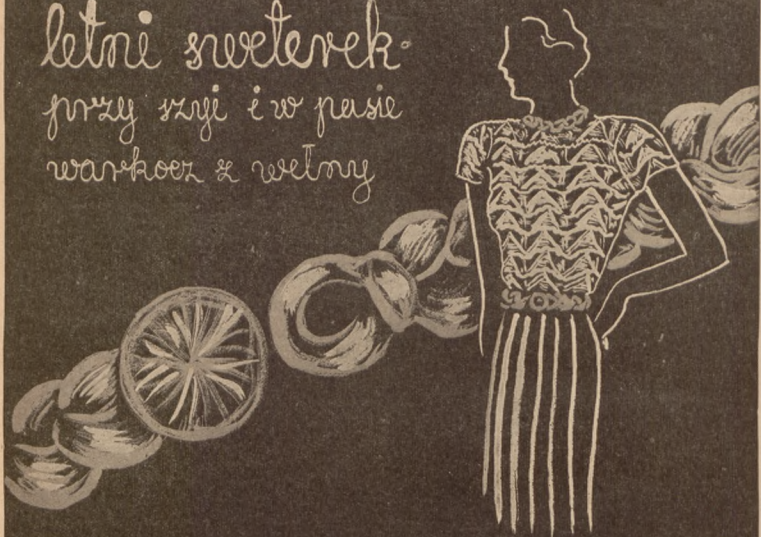 letni sweterek-
przy szyi i w pasie
warkocz z wełny